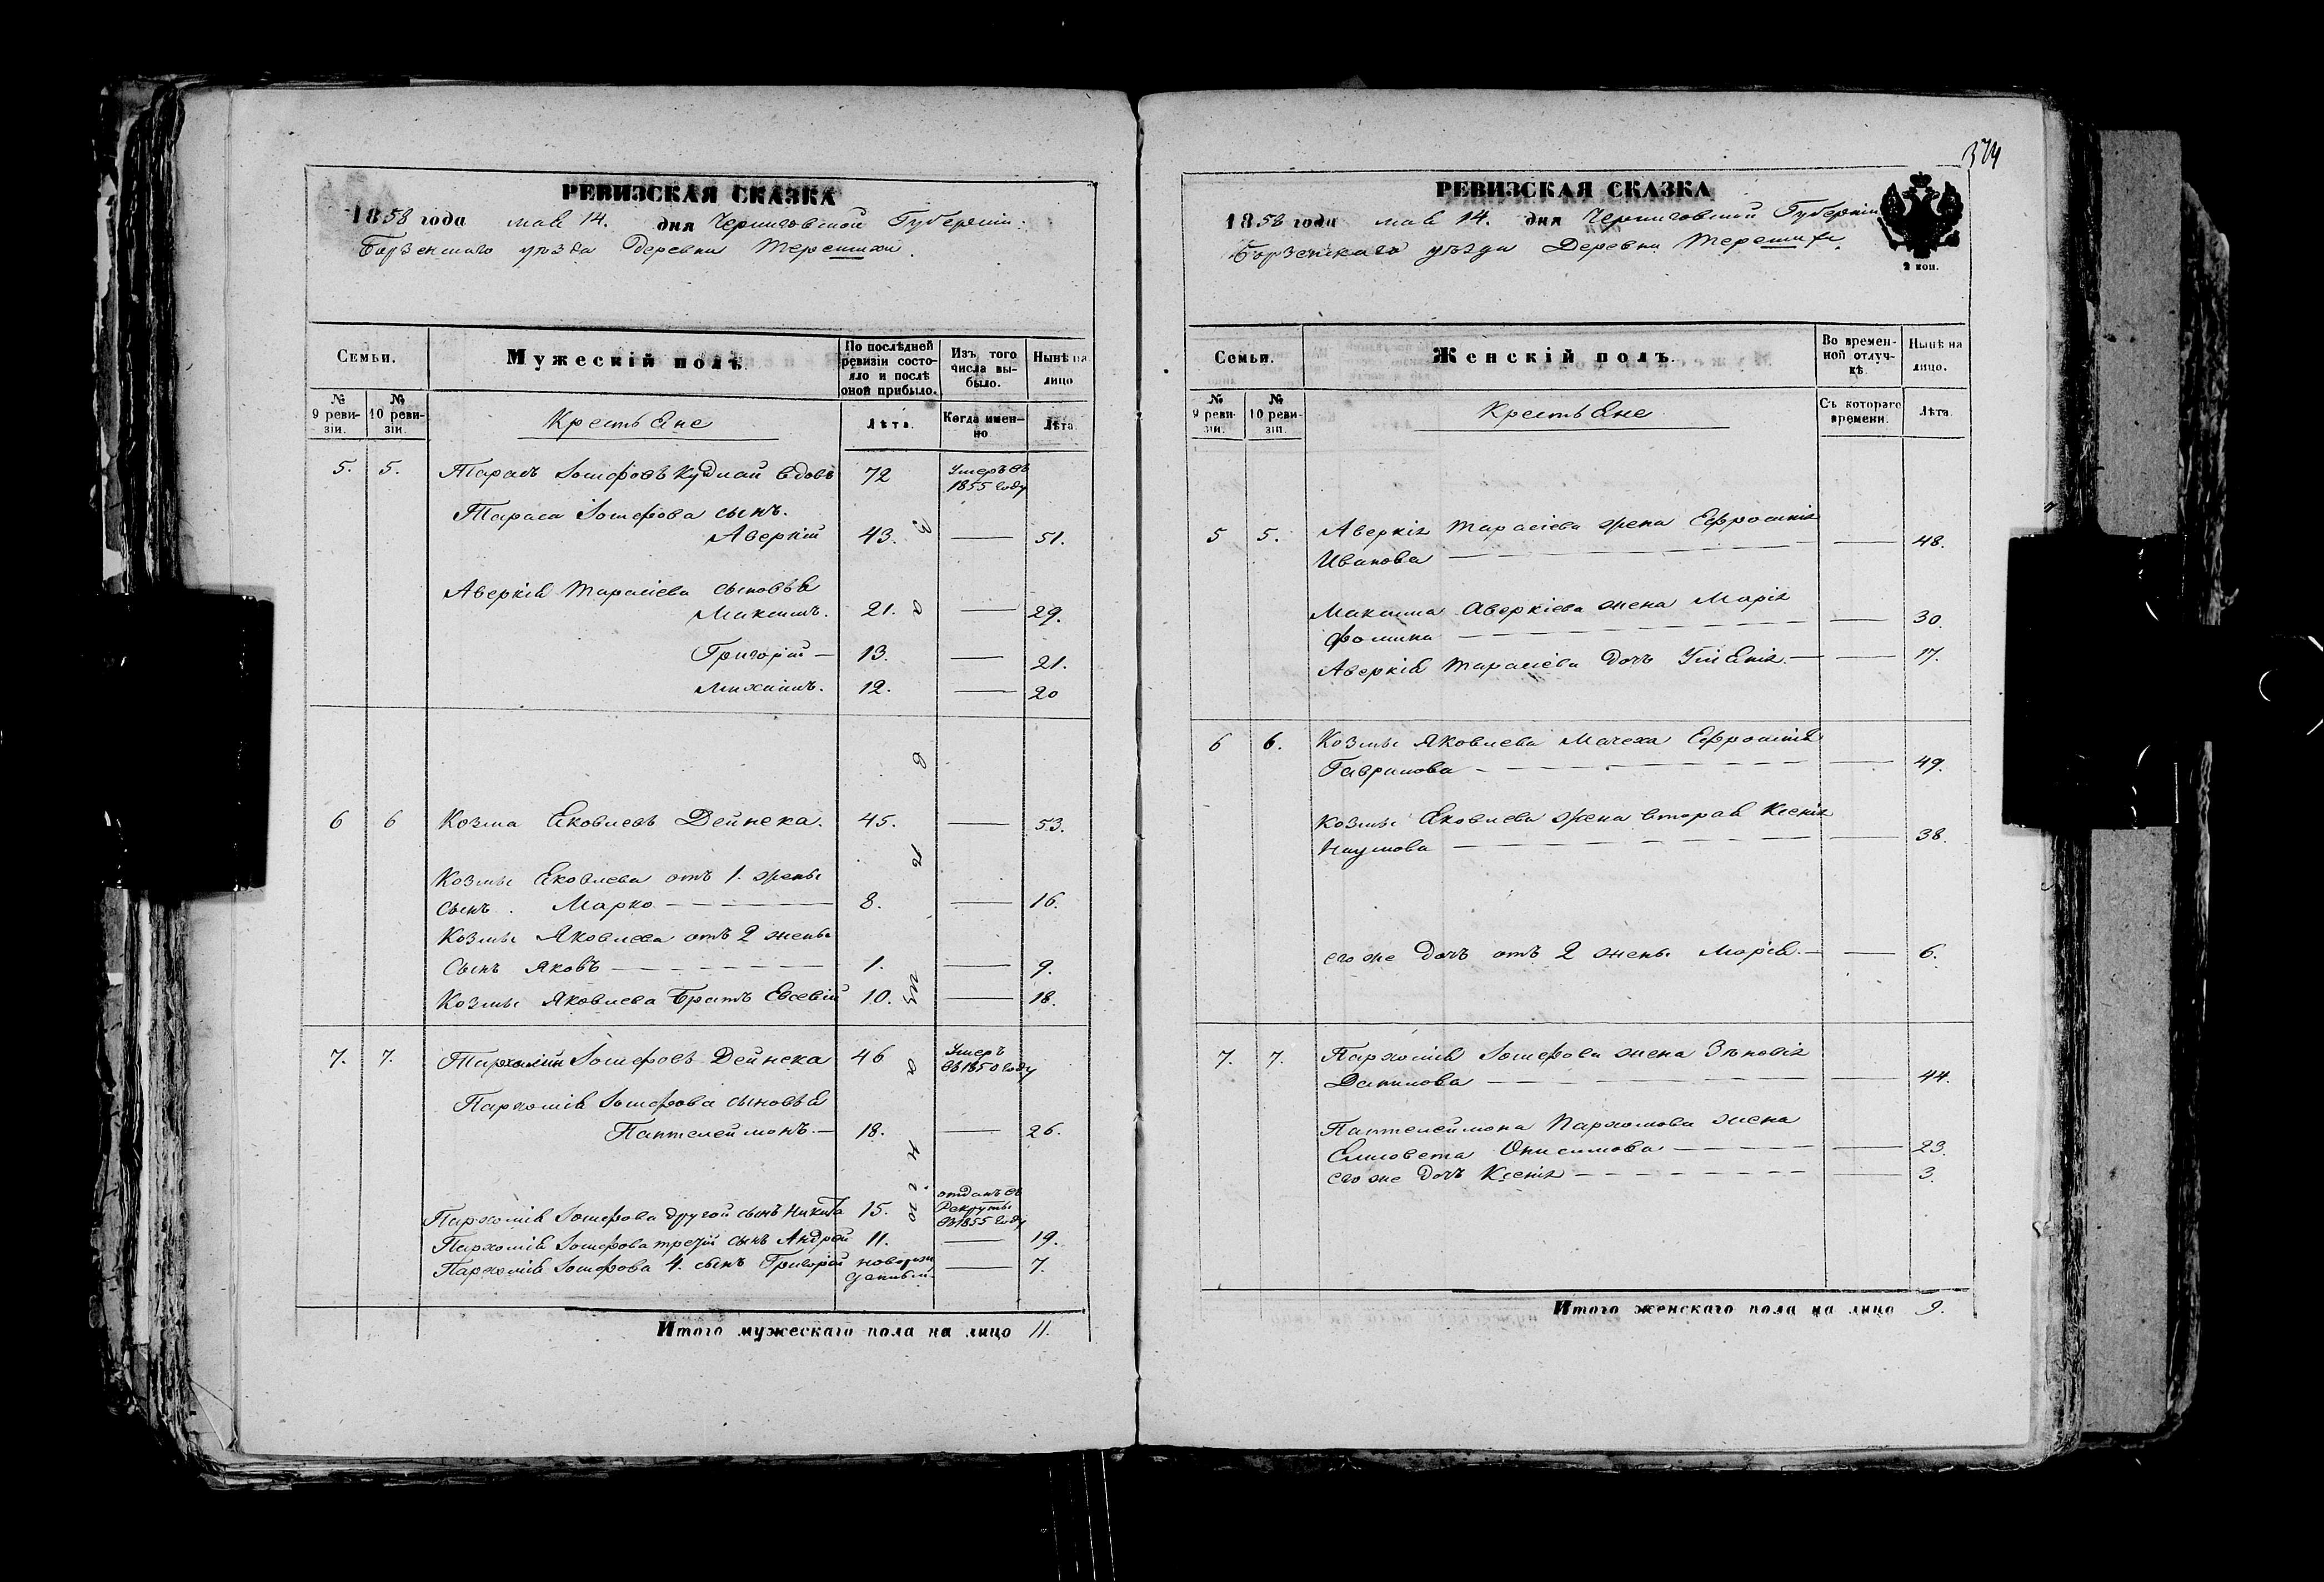 РЕВИЗСКАЯ СКАЗКА
1858 года мая 14. дня Черниговской Губерніи.
Борзенскаго уѣзда Деревни Терешихи.
Семьи.
Мужескій полъ.
По послѣдней ревизіи состояло и послѣ оной прибыло.
Изъ того числа выбыло.
Нынѣ на лицо
№ 9 ревизіи.
№ 10 ревизіи.
Крестьяне
Лѣта.
Когда именно
Лѣта.
5. 5. Тарасъ Іосифовъ Кудлай вдовъ 72 Умеръ въ 1855 году
Тараса Іосифова сынъ.
Аверкій 43. — 51.
Аверкія Тарасіева сыновья
Максимъ. 21. — 29.
Григорій — 13. — 21.
Михаилъ. 12. — 20
6 6 Козма Яковлевъ Дейнека. 45. — 53.
Козмы Яковлева отъ 1. жены
сынъ. Марко — 8. — 16.
Козмы Яковлева отъ 2 жены
Сынъ Яковъ — 1. — 9.
Козмы Яковлева Братъ Евсевій 10. — 18.
7. 7. Пархомій Іосифовъ Дейнека 46 Умеръ въ 1850 году
Пархомія Іосифова сыновья
Пантелеймонъ. — 18. — 26.
Пархомія Іосифова другой сынъ Никита 15. отданъ въ Рекруты въ 1855 году
Пархомія Іосифова третій сынъ Андрей 11. — 19.
Пархомія Іосифова 4. сынъ Григорій новорожденный — 7.
Итого мужескаго пола на лицо 11.
374
РЕВИЗСКАЯ СКАЗКА
1858 года мая 14. дня Черниговской Губерніи
Борзенскаго уѣзда Деревни Терешихи.
2 коп.
Семьи.
Женскій полъ.
Во временной отлучкѣ
Нынѣ на лицо.
№ 9 ревизіи.
№ 10 ревизіи.
Крестьяне
Съ котораго времени.
Лѣта.
5 5. Аверкія Тарасіева жена Ефросинія
Иванова — — 48.
Максима Аверкіева жена Марія
Фомина — — 30.
Аверкія Тарасіева дочь Уліянія. — — 17.
6 6. Козмы Яковлева Мачеха Ефросинія
Гаврилова — — 49.
Козмы Яковлева жена вторая Ксенія
Наумова — — 38.
его же дочь отъ 2 жены Марія. — — 6.
7. 7. Пархомія Іосифова жена Зѣновія
Данилова — — 44.
Пантелеймона Пархомова жена
Елисовета Онисимова — — 23.
его же дочь Ксенія — 3.
Итого женскаго пола на лицо 9.